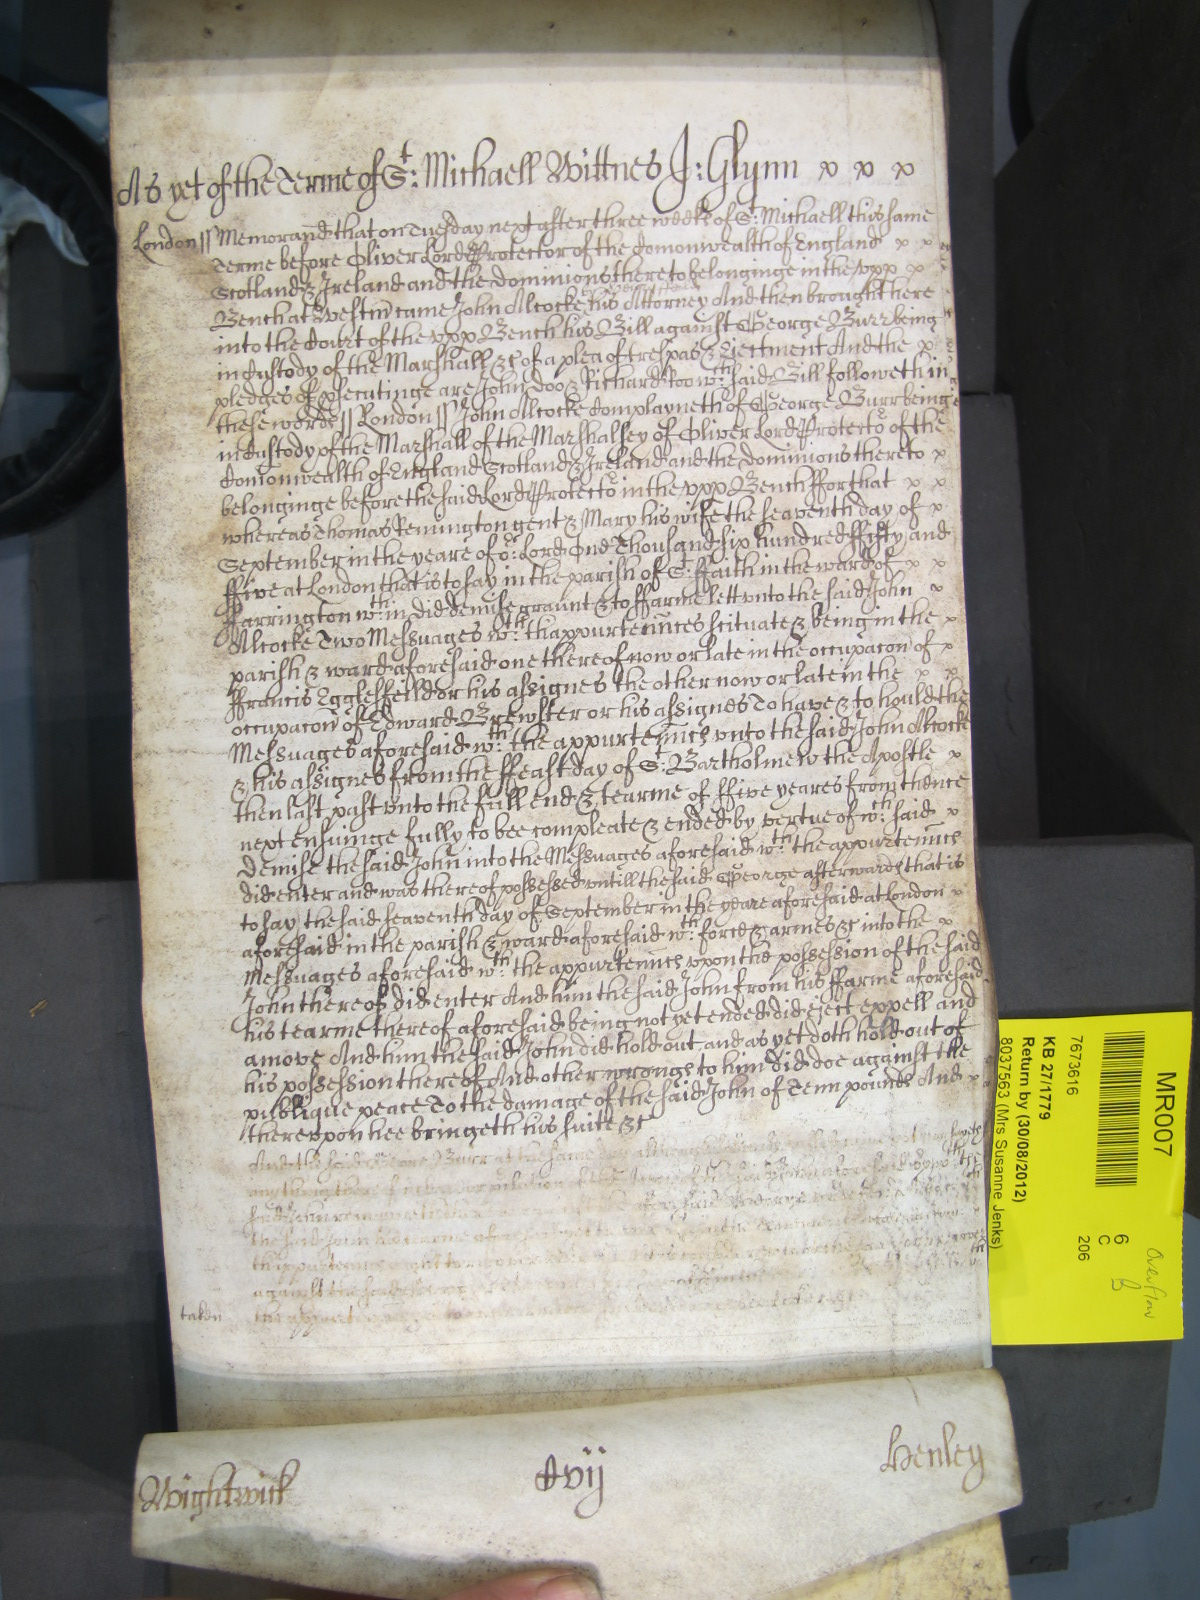 As yet of the Terme of St: Michaell Wittnes J: Glynn x x x
London ss Memorand that on Tuesday next after three weeks of St: Michaell this same
Terme before Oliver Lord Protector of the Comonwealth of England x x
Scotland & Ireland and the dominions thereto belonginge in the vpp x
Bench at Westm came John Alcocke by his Attorney And then brought here
into the Court of the vpp Bench his Bill against George Burr being
in Custody of the Marshall &c of a plea of trespas & Ejectment And the x
pledges of psecutinge are John Doo & Richard Roo wch: said Bill followeth in
these words ss London ss John Alcocke Complayneth of George Burr being
in Custody of the Marshall of the Marshalsey of Oliver Lord Protecto of the
Comonwealth of England Scotland & Ireland and the dominions thereto x
belonginge before the said Lord Protecto in the vpp Bench ffor that x x
whereas Thomas Remington gent & Mary his wife the seaventh day of x
September in the yeare of or: Lord One Thousand six hundred ffifty and
ffive at London that is to say in the parish of St: ffaith in the ward of x x
ffarrington wth:in did demise graunt & to ffarme lett vnto the said John x
Alcocke Two Messuages wth: thappurtennces scituate & being in the x
parish & ward aforesaid one thereof now or late in the occupacon of x
ffrancis Egglesfeild or his assignes the other now or late in the x x
occupacon of Edward Brewster or his assignes To have & to hould the
Messuages aforesaid wth: the appurtennces vnto the said John Alcocke
& his assignes from the ffeast day of St: Bartholmew the Apostle x
then last past vnto the full end & tearme of ffive yeares from thence
next ensuinge fully to bee compleate & ended by vertue of wch: said x
Demise the said John into the Messuages aforesaid wth: the appurtennces
did enter and was thereof possessed vntill the said George afterwards that is
to say the said seaventh day of September in the yeare aforesaid at London x
aforesaid in the parish & ward aforesaid wth: force & armes &c into the x
Messuages aforesaid wth: the appurtennces vpon the possession of the said
John thereof did enter And him the said John from his ffarme aforesaid
his tearme thereof aforesaid being not yet ended did eject expell and
amove And him the said John did hold out and as yet doth hold out of
his possession thereof And other wrongs to him did doe against the
publique peace To the damage of the said John of Tenn pounds And x
therevpon hee bringeth his suite &c
And the said George Burr at the same day
taken
Wightwick
Cvij
Henley
MR007
6
C
206
Overflow
B
7673616
KB 27/1779
Return by (30/08/2012)
8037563 (Mrs Susanne Jenks)